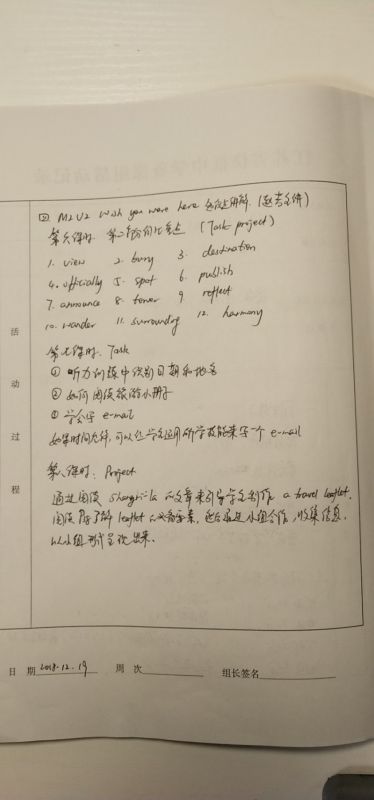 ② M2 U2 Wish you were here
第六课时. (Task project)
1. view 2. bury 3. destination
4. officially 5. spot 6. publish
7. announce 8. tower 9. reflect
10. wander 11. surrounding 12. harmony
第七课时. Task
① 听力训练中识别日期和地名
② 如何阅读旅游小册子
③ 学会写 e-mail
如果时间允许, 可以让学生运用所学技能来写一个 e-mail
第八课时: Project
通过阅读 Shangri-la 的文章来引导学生制作 a travel leaflet.
阅读 了解 leaflet 的必需要素, 然后通过小组合作, 收集信息,
以小组形式呈现出来.
活动过程
日 期 2018.12.19 周 次 组长签名